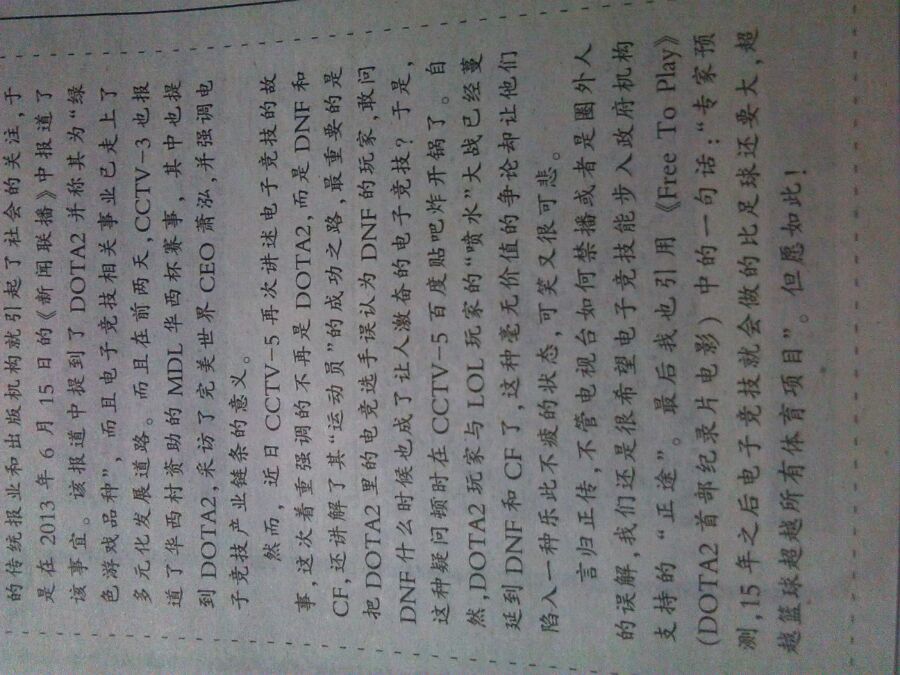 的传统报业和出版机构就引起了社会的关注,于
是在 2013 年 6 月 15 日的《新闻联播》中报道了
该事宜。该报道中提到了 DOTA2 并称其为“绿
色游戏品种”,而且电子竞技相关事业已走上了
多元化发展道路。而且在前两天,CCTV-3 也报
道了华西村资助的 MDL 华西杯赛事,其中也提
到 DOTA2,采访了完美世界 CEO 萧泓,并强调电
子竞技产业链条的意义。
然而,近日 CCTV-5 再次讲述电子竞技的故
事,这次着重强调的不再是 DOTA2,而是 DNF 和
CF,还讲解了其“运动员”的成功之路,最重要的是
把 DOTA2 里的电竞选手误认为 DNF 的玩家,敢问
DNF 什么时候也成了让人激奋的电子竞技?于是,
这种疑问顿时在 CCTV-5 百度贴吧炸开锅了。自
然,DOTA2 玩家与 LOL 玩家的“喷水”大战已经蔓
延到 DNF 和 CF 了,这种毫无价值的争论却让他们
陷入一种乐此不疲的状态,可笑又很可悲。
言归正传,不管电视台如何禁播或者是圈外人
的误解,我们还是很希望电子竞技能步入政府机构
支持的“正途”。最后我也引用《Free To Play》
(DOTA2 首部纪录片电影)中的一句话:“专家预
测,15 年之后电子竞技就会做的比足球还要大,超
越篮球超越所有体育项目”。但愿如此!